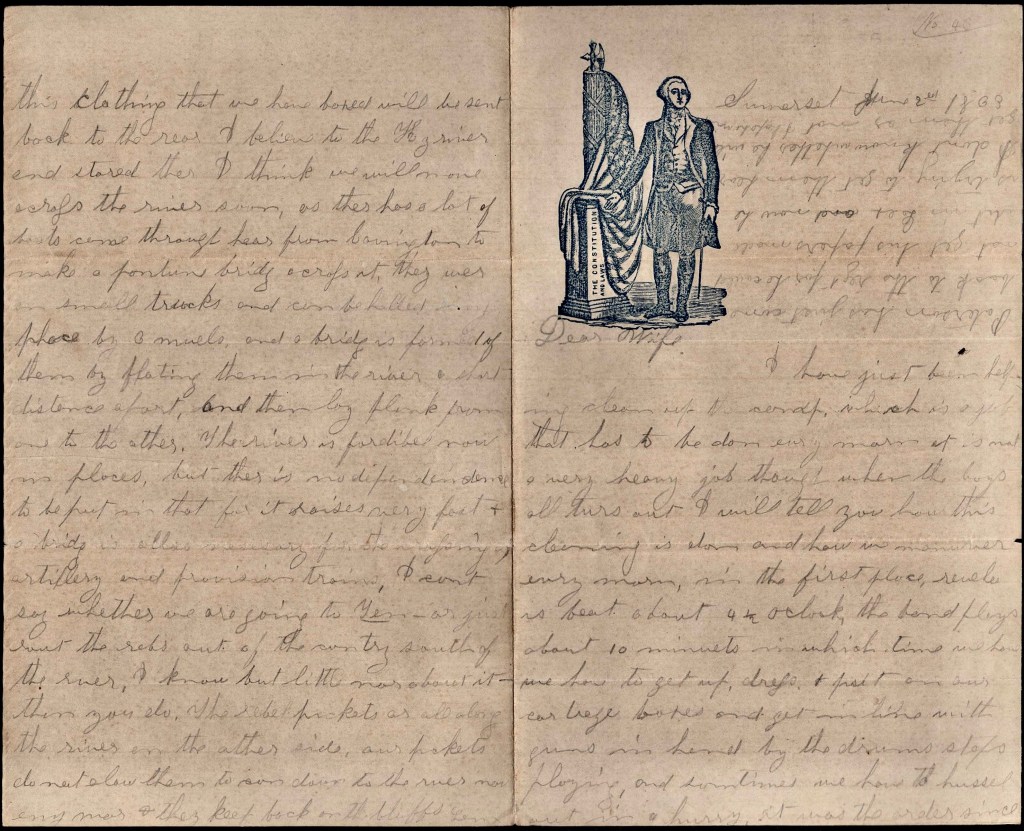 No 45
Sumerset June 2nd 1863
THE CONSTITUTION
AND LAWS
Dear Wife
I have just been help-
ing clean up the camp, which is a job
that has to be don evry morn it is not
a very heavy job though when the boys
all turs out I will tell you how this
cleaning is don and how we
evry morn, in the first place, revele
is beat about 4 ½ oclock, the band plays
about 10 minuets in which time we hav
we hav to get up, dress, & put on our
cartrege boxes and get in line with
guns in hand by the drums stops
playing, and sometimes we have to hussel
out in a hurry, it was the order since
has just come
back to the regt for he could
not get his papers made
out in Lex and now he
is trying to get them hear
I dont know whether he will
get them or not
this clothing that we have boxed will be sent
back to the rear I believe to the Ky river
and stored ther I think we will move
across the river soon, as ther has a lot of
boats come through hear from Covington to
make a pontune bridg across it, they wer
on small trucks and can be halled in
place by 6 muels, and a bridg is formed of
them by floting them in the river a short
distance apart, and then lay plank from
one to the other. The river is fordible now
in places, but ther is no dependence
to be put in that for it raises very fast &
a bridg is allso for the
artillery and provision trains, I cant
say whether we are going to Ten- or just
rout the rebs out of the contry south of
the river, I know but little mor about it
then you do. The rebel pickets ar all along
the river on the other side, our pickets
do not alow them to com down to the river no
eny mor & they keep back on the bluffs